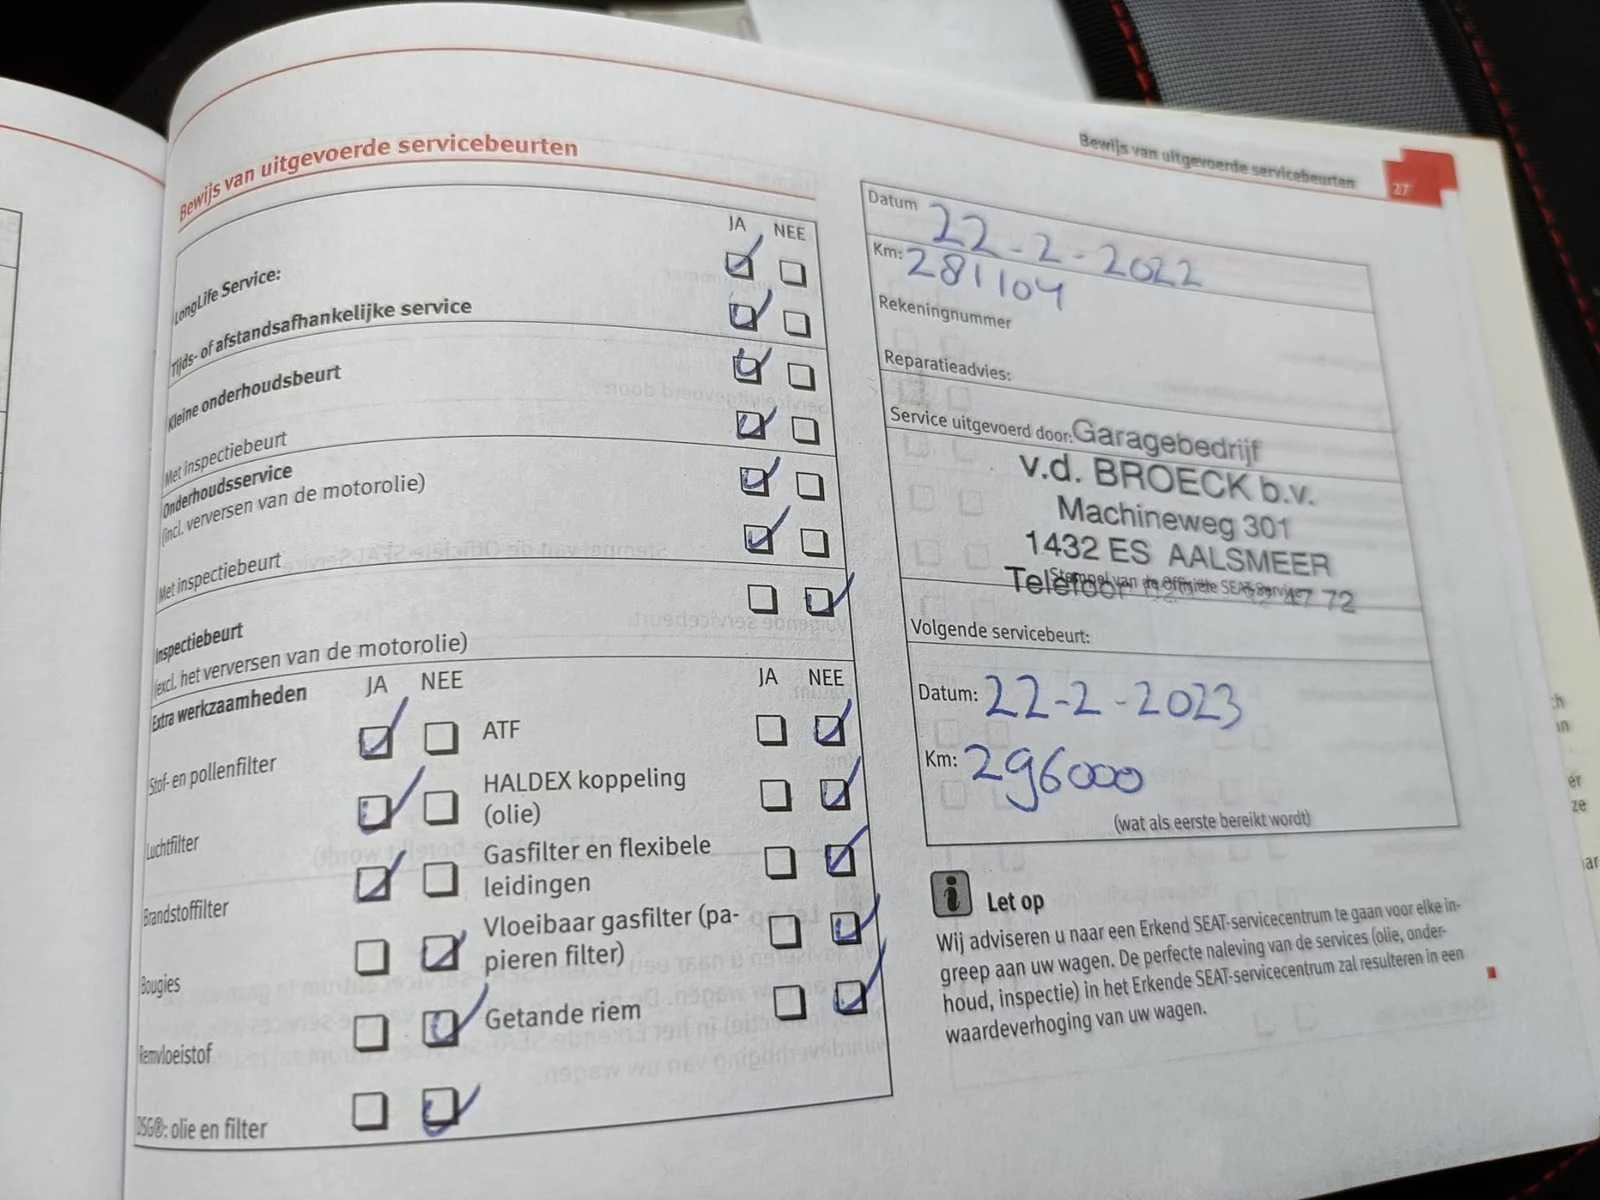 Bewijs van uitgevoerde servicebeurten
JA NEE
LongLife Service:
Tijds- of afstandsafhankelijke service
Kleine onderhoudsbeurt
Met inspectiebeurt
Onderhoudsservice
(incl. verversen van de motorolie)
Met inspectiebeurt
Inspectiebeurt
(excl. het verversen van de motorolie)
Extra werkzaamheden JA NEE
JA NEE
Stof- en pollenfilter
Luchtfilter
Brandstoffilter
Bougies
Remvloeistof
DSG®: olie en filter
ATF
HALDEX koppeling
(olie)
Gasfilter en flexibele
leidingen
Vloeibaar gasfilter (pa-
pieren filter)
Getande riem
Bewijs van uitgevoerde servicebeurten 27
Datum 22-2-2022
Km: 281104
Rekeningnummer
Reparatieadvies:
Service uitgevoerd door: Garagebedrijf
v.d. BROECK b.v.
Machineweg 301
1432 ES AALSMEER
Stempel van de Officiële SEAT-Service
Telefoon 72
Volgende servicebeurt:
Datum: 22-2-2023
Km: 296000
(wat als eerste bereikt wordt)
i Let op
Wij adviseren u naar een Erkend SEAT-servicecentrum te gaan voor elke in-
greep aan uw wagen. De perfecte naleving van de services (olie, onder-
houd, inspectie) in het Erkende SEAT-servicecentrum zal resulteren in een
waardeverhoging van uw wagen.